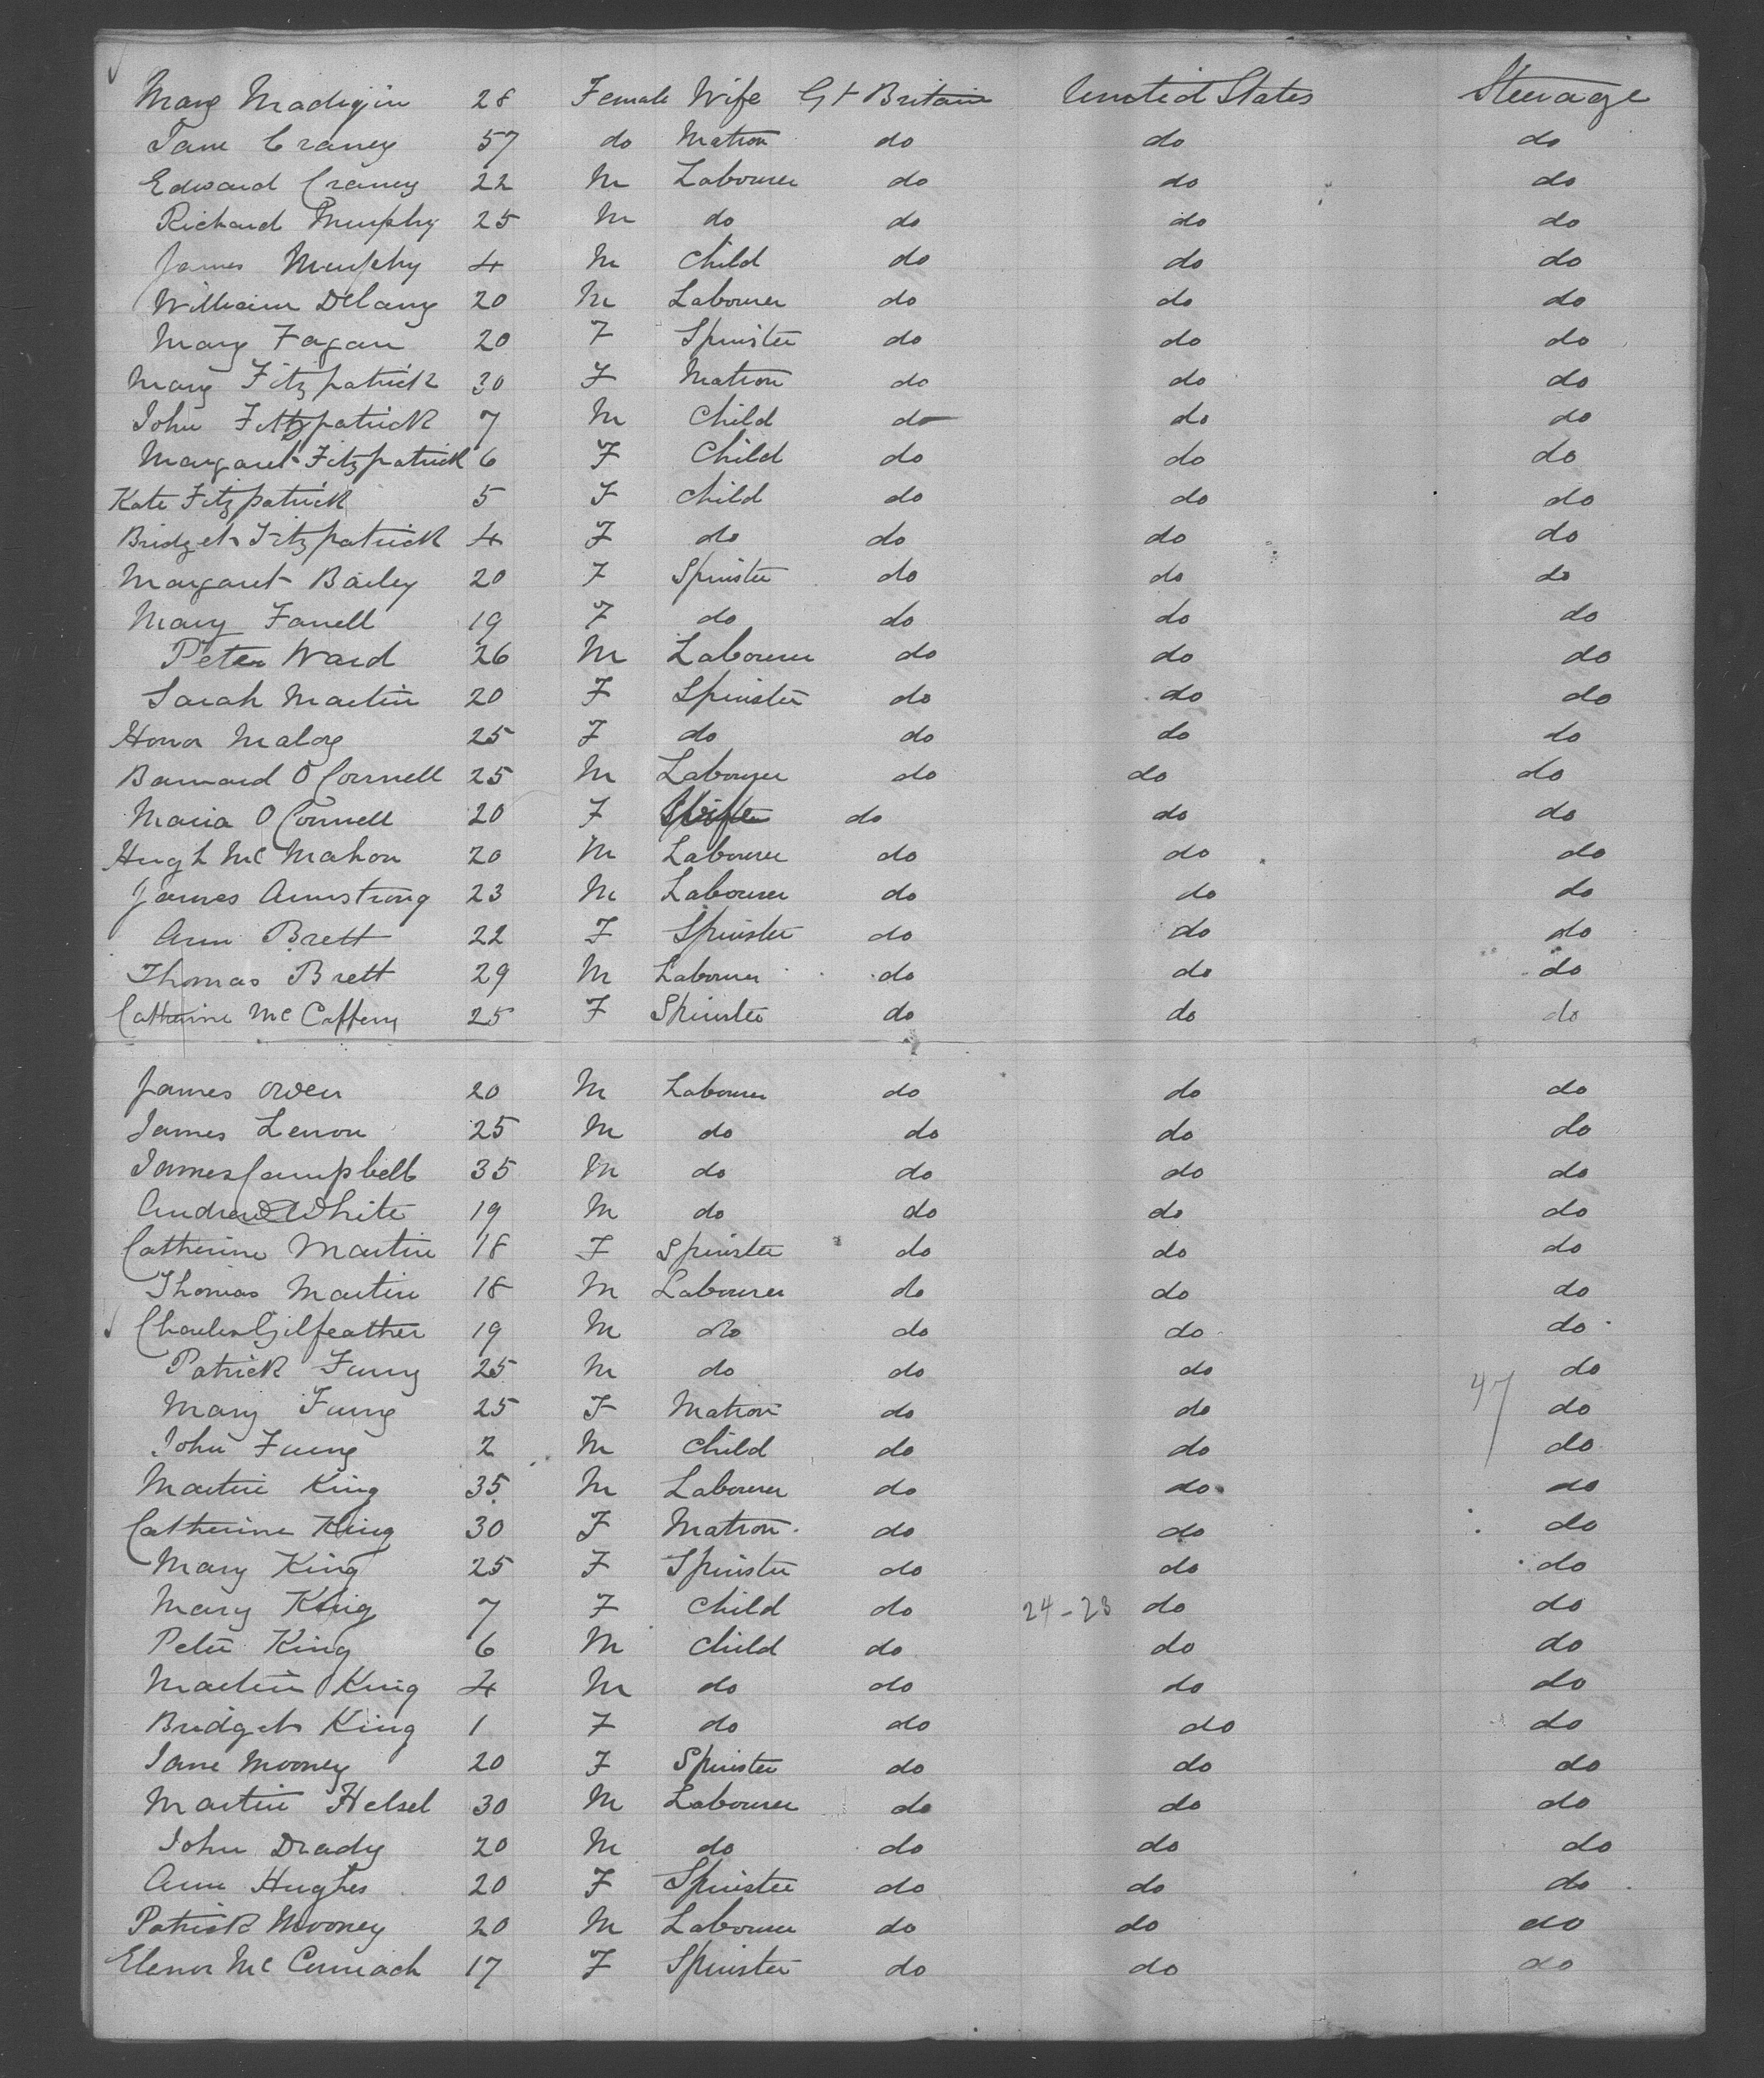 Mary Madigin 28 Female Wife Gt Britain United States Steerage
Jane Craney 57 do Matron do do do
Edward Craney 22 M Labourer do do do
Richard Murphy 25 M do do do do
James Murphy 4 M Child do do do
William Delany 20 M Labourer do do do
Mary Fagan 20 F Spinster do do do
Mary Fitzpatrick 30 F Matron do do do
John Fitzpatrick 7 M Child do do do
Margaret Fitzpatrick 6 F Child do do do
Kate Fitzpatrick 5 F Child do do do
Bridget Fitzpatrick 4 F do do do do
Margaret Bailey 20 F Spinster do do do
Mary Farrell 19 F do do do do
Peter Ward 26 M Labourer do do do
Sarah Martin 20 F Spinster do do do
Honor Maloy 25 F do do do do
Barnard O Connell 25 M Labourer do do do
Maria O Connell 20 F Wife do do do
Hugh Mc Mahon 20 M Labourer do do do
James Armstrong 23 M Labourer do do do
Ann Brett 22 F Spinster do do do
Thomas Brett 29 M Labourer do do do
Catherine Mc Caffery 25 F Spinster do do do
James Owen 20 M Labourer do do do
James Lennon 25 M do do do do
James Campbell 35 M do do do do
Andrew White 19 M do do do do
Catherine Martin 18 F Spinster do do do
Thomas Martin 18 M Labourer do do do
Charles Gilfeather 19 M do do do do
Patrick 25 M do do do do
Mary 25 F Matron do do 47 do
John 2 M Child do do do
Martin King 35 M Labourer do do do
Catherine King 30 F Matron do do do
Mary King 25 F Spinster do do do
Mary King 7 F Child do 24-23 do do
Peter King 6 M Child do do do
Martin King 4 M do do do do
Bridget King 1 F do do do do
Jane Mooney 20 F Spinster do do do
Martin Helsel 30 M Labourer do do do
John Drady 20 M do do do do
Ann Hughes 20 F Spinster do do do
Patrick Mooney 20 M Labourer do do do
Elenor Mc Cormack 17 F Spinster do do do